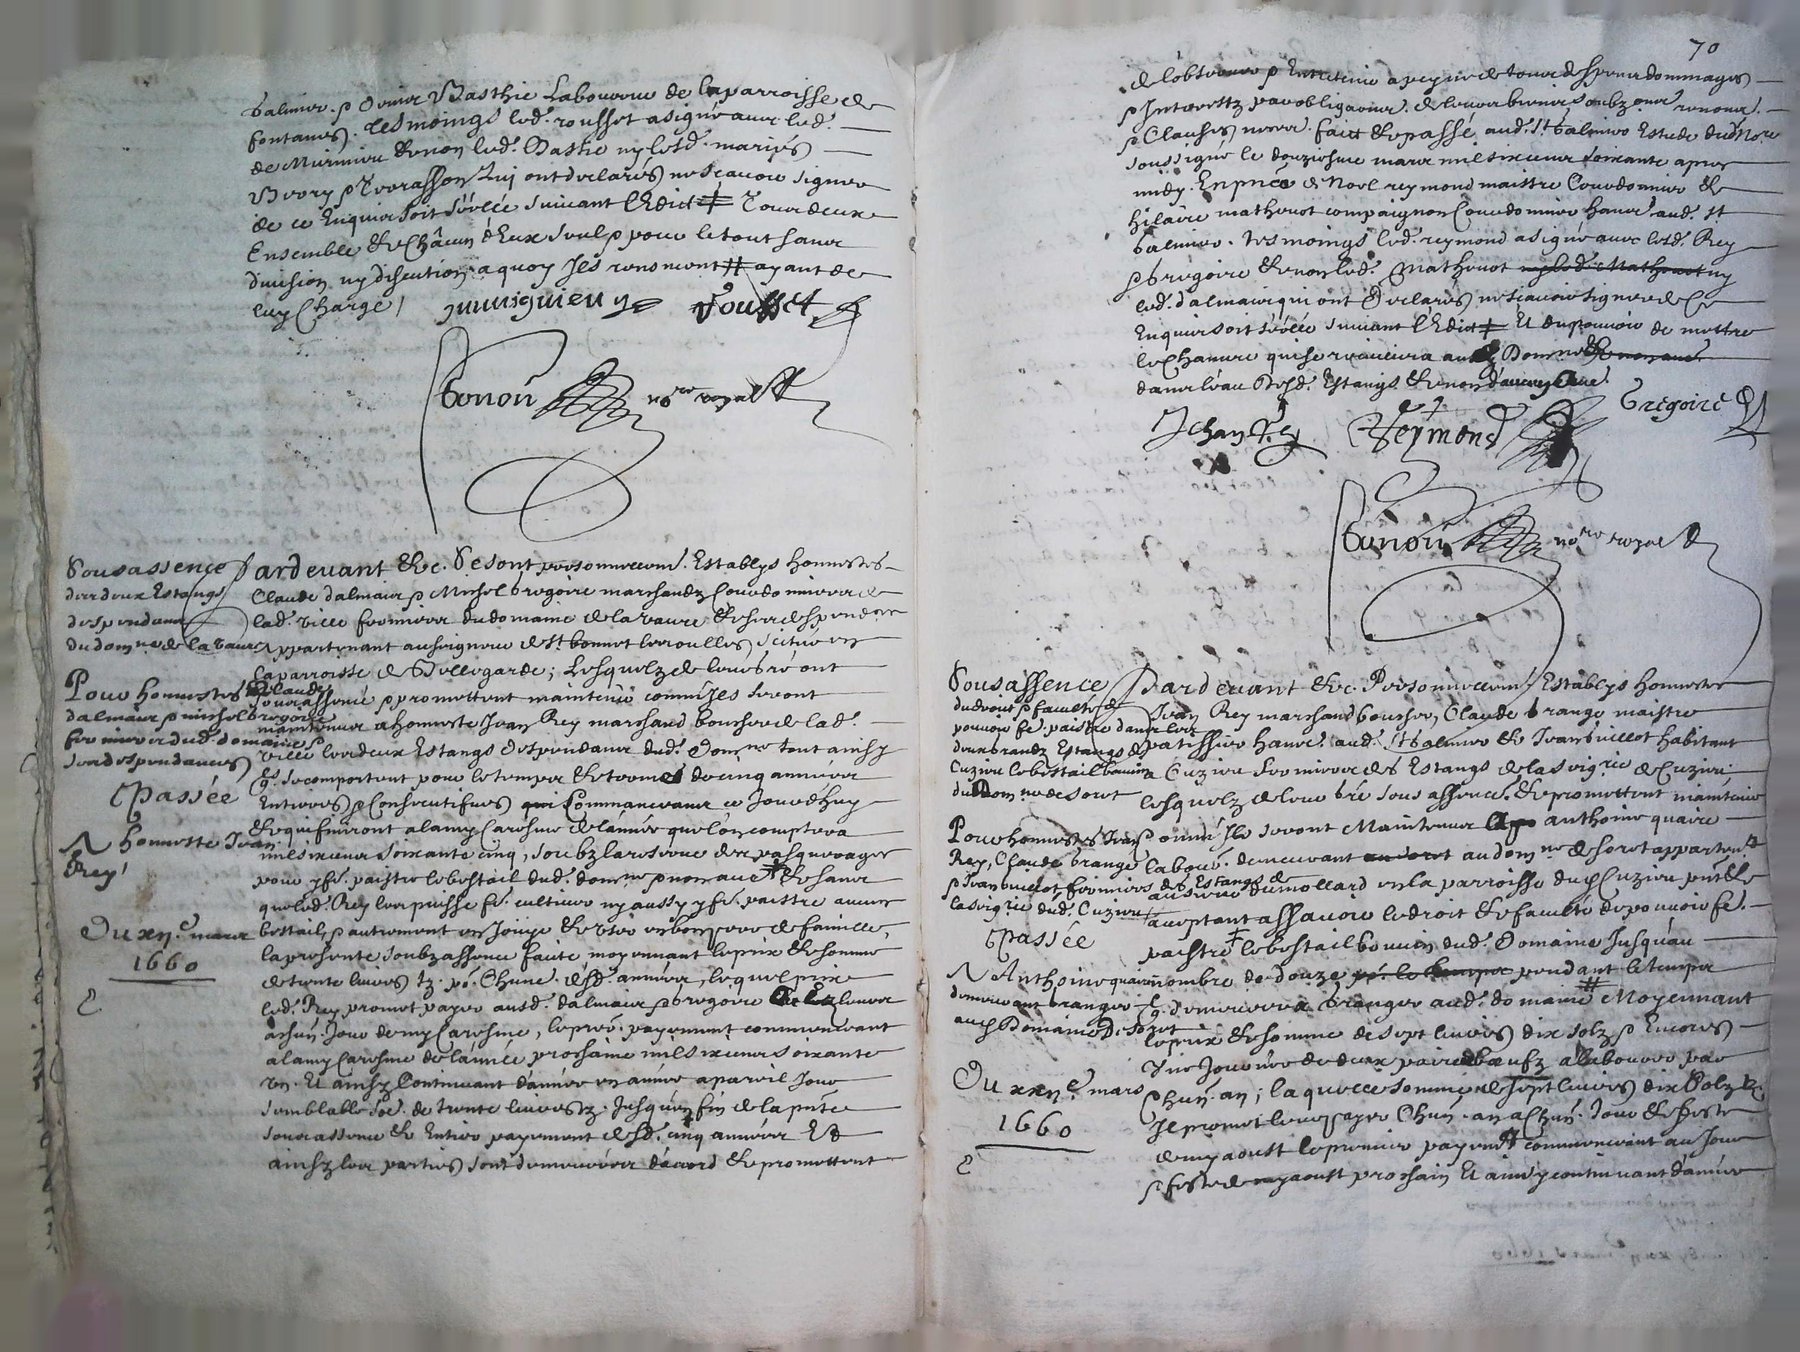 Galmier & Denis Basthie Laboureur de la parroisse de
fontanes. tesmoings led. rousset a signé avec led.
de Murinieu & non led. Bastie ny lesd. mariés
qui ont declarés ne scavoir signer
de ce Enquis soit séellé suivant l'Edict # & tous deux
Ensemble & Châcun d'Eux seul & pour le tout sans
division ny discution a quoy Ils renoncent # ayant de
luy Charge /
Rousset
Bonon no.re royal
Sousassence
des deux Estangs
despendans
du dom.ne de la vaure
Pour honnestes Claude
dalmais & michel gregoire
fermiers dud. domaine &
ses despendances
Passée
A honneste Jean
Rey
Du xii.e mars
1660
Pardevant &c. Se sont personnellem. Establys honnestes
Claude dalmais & Michel gregoire marchandz Courdonniers de
lad. ville fermiers du domaine de la vaure & ses despend.ces
Appartenant au seigneur de st. bonnet les oulles scitué en
la parroisse de Bellegarde; Lesquelz de leur gré ont
sousassencé & promettent maintenir comm'Ils seront
maintenus a honneste Jean Rey marchand boucher de lad.
ville les deux Estangs despendans dud. Dom.ne tout ainsy
qu'ils se comportent pour le temps & terme de cinq années
Entieres & Consecutifves qui Commanceront ce Jourd'huy
& qui finiront a la my Caresme de l'année que l'on comptera
mil six cens soixante cinq, soubz la reserve des pasquerages
pour y f.e paistre le bestail dud. dom.ne & non autre & sans
que led. Rey les puisse f.e cultiver ny aussy y f.e paistre aucun
bestail, & autrement en Jouyr & user en bon pere de famille,
la presente soubzassence faite moyennant le prix & somme
de trente livres tz. p.r Chune. desd. années, lequel prix
led. Rey promet payer ausd. dalmais & gregoire
achun Jour de my Caresme, le pre.r payement commenceant
a la my Caresme de l'année prochaine mil six cens soixante
un. Et ainsy Continuant d'année en année a pareil Jour
semblable so.e de trente livres tz. Jusques en fin de la p.nte
sousassence & Entier payement desd. cinq années Et
ainsy les parties sont demeurées d'acord & promettent
70
de l'observer & Entretenir a peyne de tous despens dommages
& Interestz par obligations de leurs biens soubz ons renons.
& Clauses neces. faict & passé aud. St. Galmier Estude dud. No.re
soussigné le douziesme mars mil six cens soixante apres
midy. En p.nce de Noel reymond maistre Courdonnier &
hilaire mathevot compaignon Courdonnier hans. aud. St
Galmier. tesmoings led. reymond a signé avec lesd. Rey
& gregoire & non led. Mathevot ny
led. dalmais qui ont declarés ne scavoir signer de Ce
Enquis soit séellé suivant l'Edict # Et du pouvoir de mettre
le Chanvre qui se recueillira aud. Dom.ne
dans l'eau desd. Estangs & non d'aucun autre.
Jehan Rey Reymond Gregoire
Bonon no.re royal
Sousassence
du droit & faculté de
pouvoir f.e paistre dans les
deux grandz Estangs de
Cuzieu le bestail bouvin
du Dom.ne de soret
Pour honnestes Jean
Rey, Claude grange
& Jean buillet fermiers des Estangs de
la seig.rie dud. Cuzieu
Passée
A Anthoine quaire
demeurant granger
aud. Domaine de Soret
Du xxii.e mars
1660
Pardevant &c. Personnellem. Establys honnestes
Jean Rey marchand boucher, Claude grange maistre
patissier hans. aud. St Galmier & Jean buillet habitant
a Cuzieu fermiers des Estangs de la seig.rie de Cuzieu
lesquelz de leur gré sous assencent & promettent maintenir
comm'Ils seront Maintenus A anthoine quaire
labour. demeurant au dom.ne de soret appartent.
au sieur dumollard en la parroisse dud. Cuzieu present
acceptant assavoir le droit & faculté de pouvoir f.e
paistre # le bestail bouvin dud. Domaine Jusqu'au
nombre de douze pendant le temps
qu'il demeurera Granger aud. domaine # Moyennant
le prix & somme de sept livres dix solz & Encores
Une Journée de deux paires bœufz a labourer par
Chun. an; laquelle somme de sept livres dix Solz tz.
Il promet leur payer Chun. an a Chun. Jour & feste
de my aoust le premier payem.t commenceant au Jour
& feste de my aoust prochain Et ainsy continuant d'année